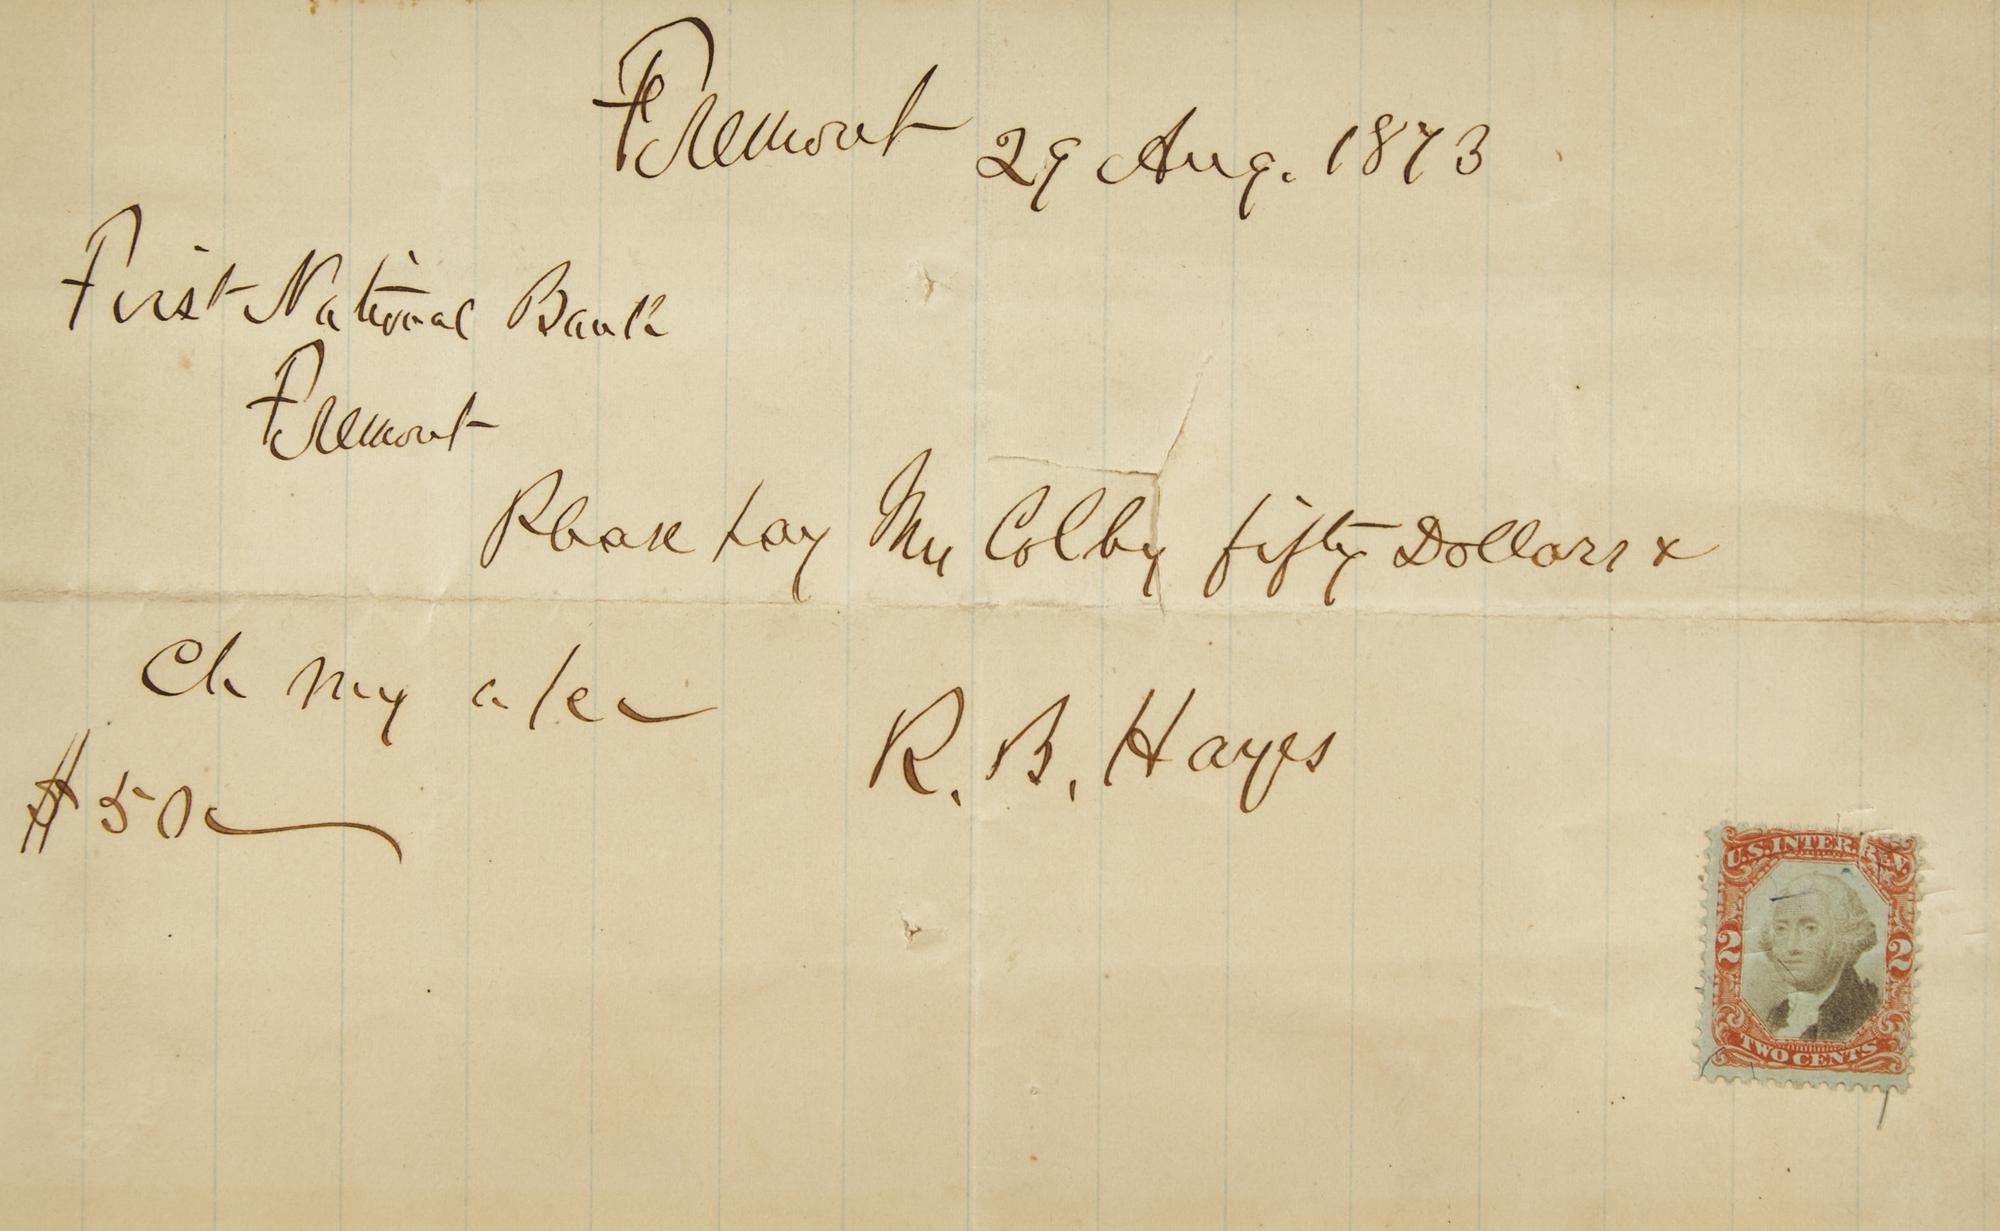 Fremont 29 Aug. 1873
First National Bank
Fremont
Please pay Mr Colby fifty Dollars &
Ch my a/c
R. B. Hayes
$50
U.S. INTER. REV.
2 2
TWO CENTS